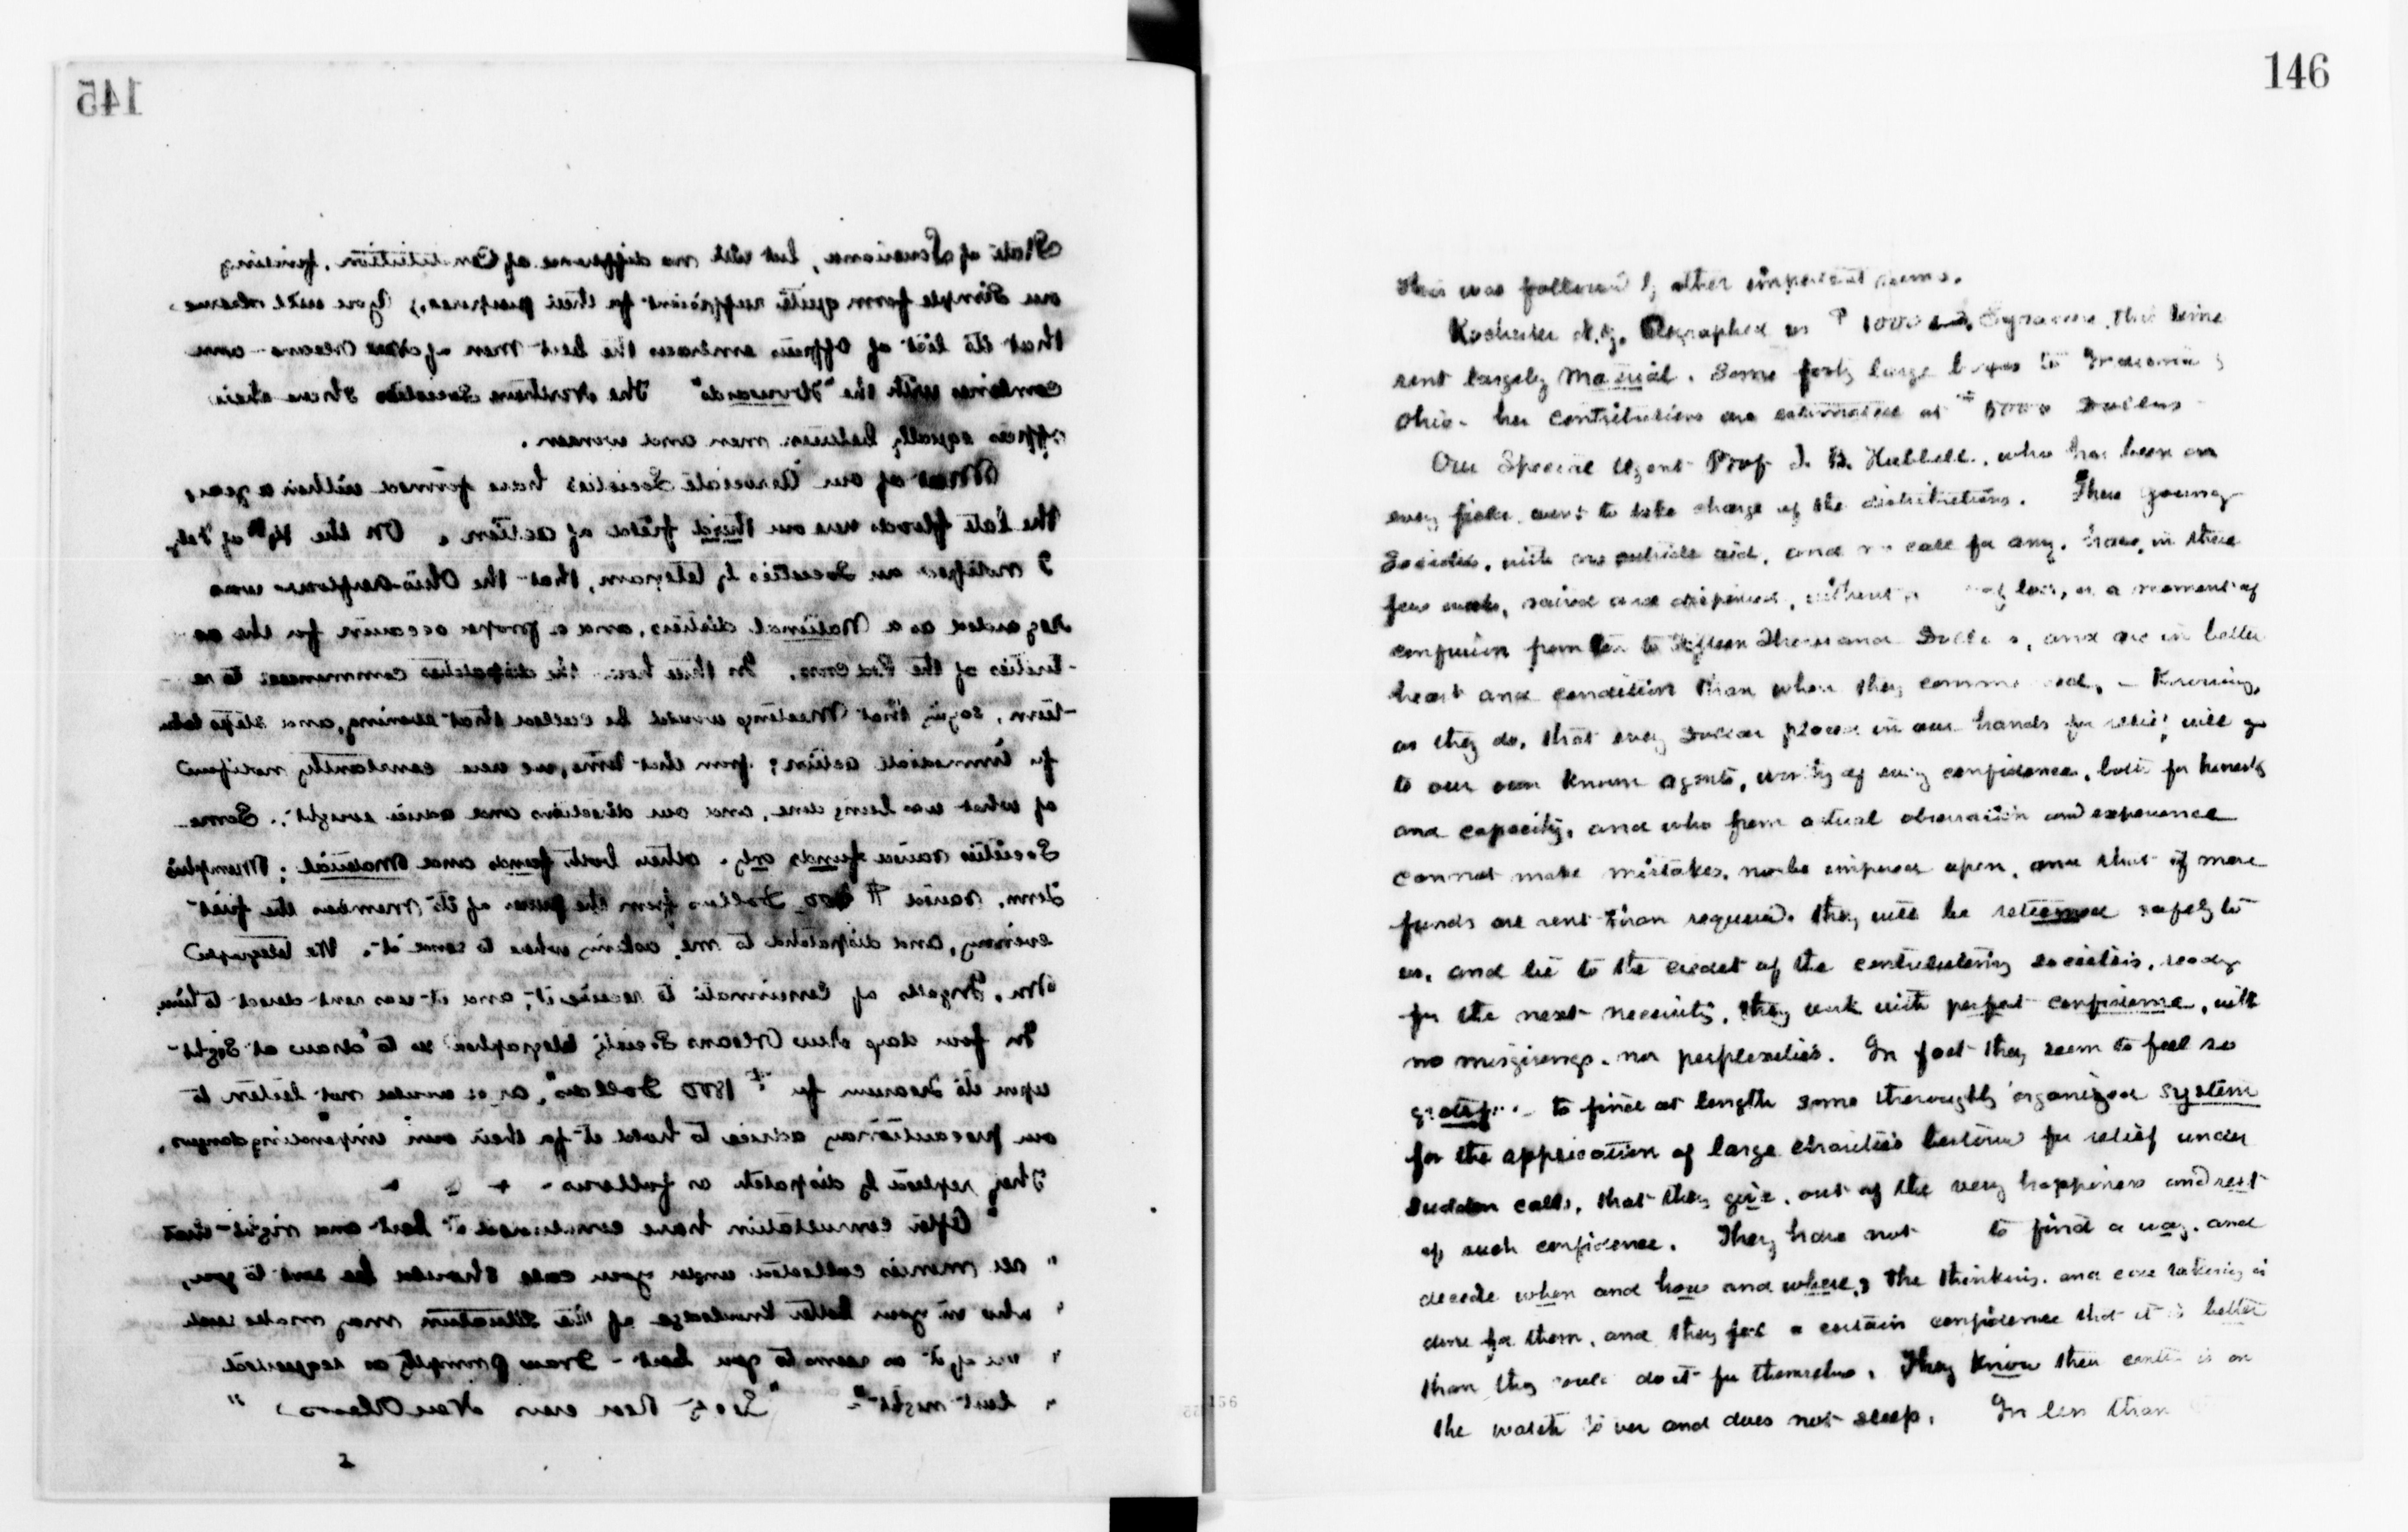 145
State of Louisiana, but with no difference of Constitution, finding
our simple form quite sufficient for their purposes.) You will observe
that its list of officers embraces the best men of New Orleans - and
combines with the "Howards" The Northern Societies share their
offices equally between men and women.
Most of our Associate Societies have formed within a year,
The late floods were our third field of action. On the of Feby
I notified our Societies by telegram, that the Ohio sufferers was
regarded as a National distress, and a proper occasion for the ac
-tivities of the Red Cross. In three hours the dispatches commenced to re
-turn, saying that Meetings would be called that evening, and steps taken
for immediate action; from that time, we were constantly notified
of what was being done, and our directions and advice sought. Some
Societies raised funds only, others both funds and Material; Memphis
Tenn, raised $ Dollars from the of its members the first
evening, and dispatched to me, asking where to send it. We telegraphed
Mr. Ingalls of Cincinnati to receive it, and it was sent direct to him
In four days New Orleans Society telegraphed us to draw at sight
upon its Treasurer for $ 1800 Dollars, as it would not listen to
our precautionary advice to hold it for their own impending dangers,
They replied by dispatch as follows -
"After consultation have concluded it best and right that
" all monies collected under your call should be sent to you,
" who in your better knowledge of the situation may make such
" use of it as seems to you best - Draw promptly as requested
" last night" - "Socy Red Cross New Orleans"
2
146
This was followed by other important sums.
Rochester N.Y. telegraphed us $ 1000 Syracuse, this time
sent largely Material. Some forty large boxes to
Ohio - her contributions are estimated at $ 5000 Dollars
Our Special Agent Prof J. B. Hubbell, who has been on
every field went to take charge of the distributions. These young
Societies, with no outside aid, and no call for any, have, in these
few weeks, raised and dispensed, without loss, or a moment of
confusion from ten to fifteen Thousand Dollars, and are in better
heart and condition than when they commenced, - Knowing,
as they do, that every Dollar placed in our hands for relief, will go
to our own known agents, worthy of every confidence, both for honesty
and capacity, and who from actual observation and experience
cannot make mistakes, nor be imposed upon, and that if more
funds are sent than required, they will be returned safely to
us, and lie to the credit of the contributing societies, ready
for the next necessity, they work with perfect confidence, with
no misgivings, nor perplexities. In fact they seem to feel so
to find at length some thoroughly organized system
for the application of large charities bestowed for relief under
sudden calls, that they give, out of the very happiness and rest
of such confidence. They have not to find a way, and
decide when and how and where, The thinking, and care taking is
done for them, and they feel a certain confidence that it is better
than they could do it for themselves, They know their centre is on
the watch tower and does not sleep, In less than